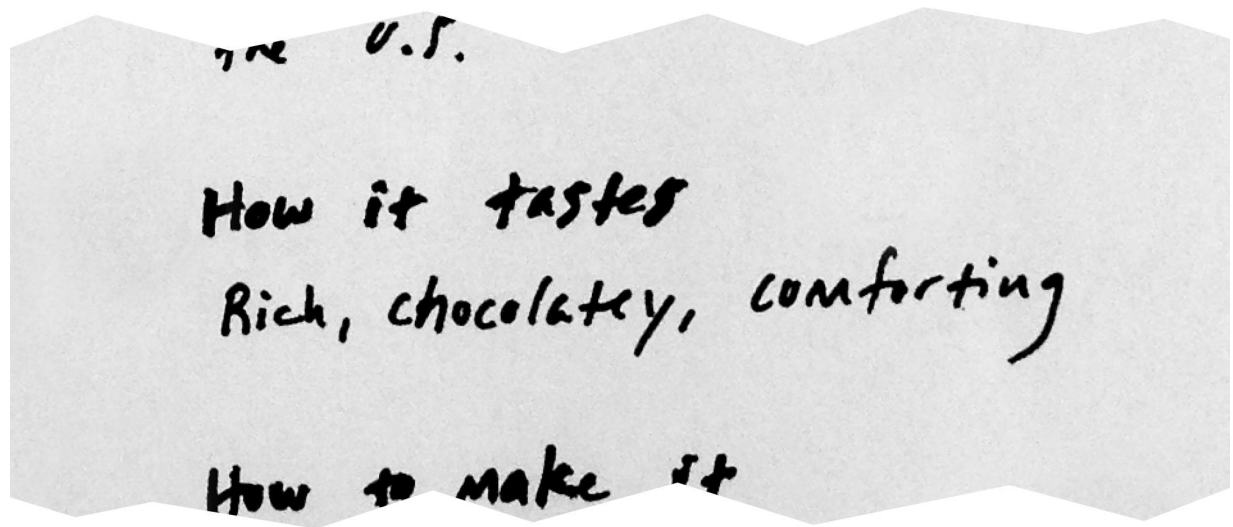 the U.S.
How it tastes
Rich, chocolatey, comforting
How to make it